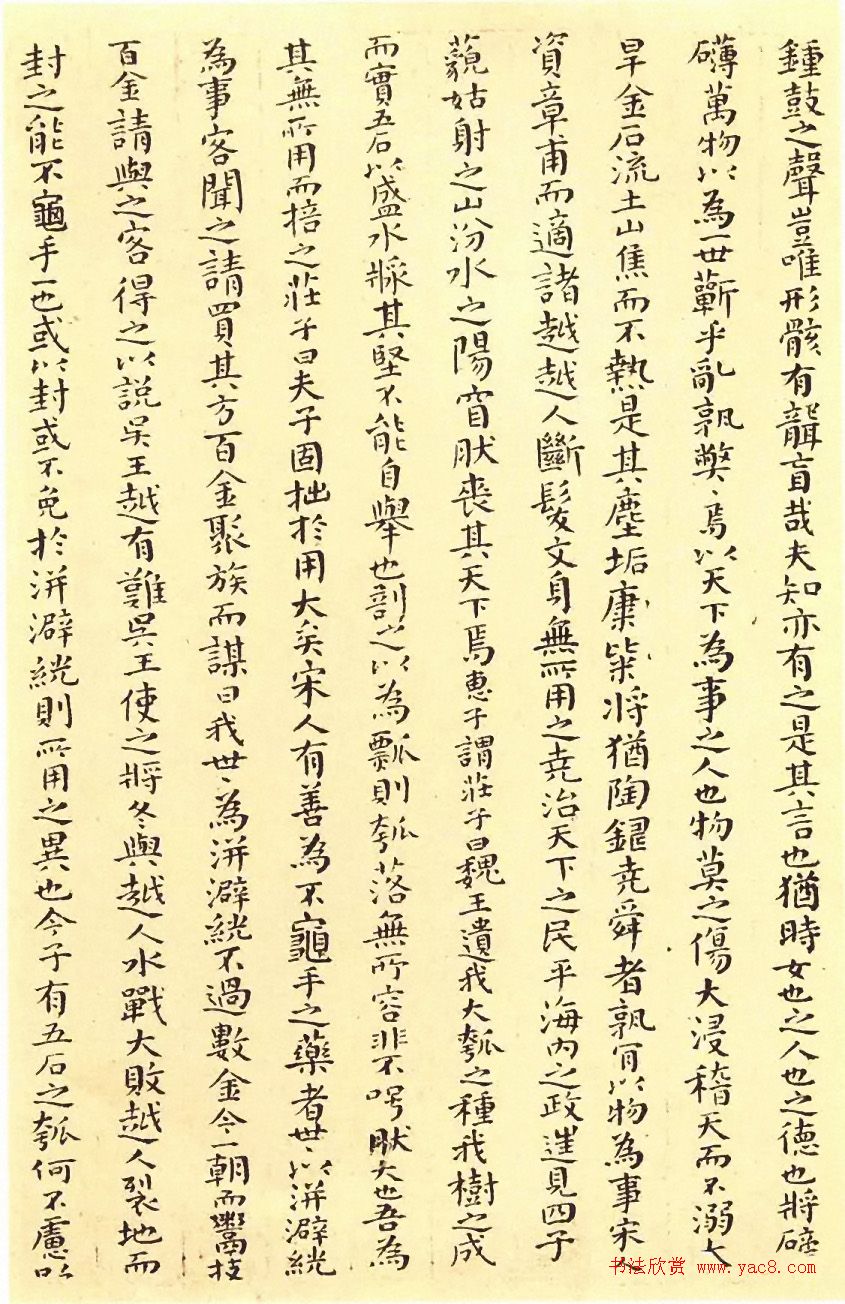 鍾鼓之聲豈唯形骸有聾盲哉夫知亦有之是其言也猶時女也之人也之德也將磅
礴萬物以為一世蘄乎亂孰弊〻焉以天下為事之人也物莫之傷大浸稽天而不溺大
旱金石流土山焦而不熱是其塵垢穅粃將猶陶鑄堯舜者孰肎以物為事宋
資章甫而適諸越越人斷髮文身無所用之堯治天下之民平海內之政進見四子
藐姑射之山汾水之陽窅肰喪其天下焉惠子謂莊子曰魏王遺我大瓠之種我樹之成
而實五石以盛水漿其堅不能自舉也剖之以為瓢則瓠落無所容非不呺肰大也吾為
其無所用而掊之莊子曰夫子固拙於用大矣宋人有善為不龜手之藥者世〻以洴澼絖
為事客聞之請買其方百金聚族而謀曰我世〻為洴澼絖不過數金今一朝而鬻技
百金請與之客得之以說吳王越有難吳王使之將冬與越人水戰大敗越人裂地而
封之能不龜手一也或以封或不免於洴澼絖則所用之異也今子有五石之瓠何不慮以
书法欣赏 www.yac8.com